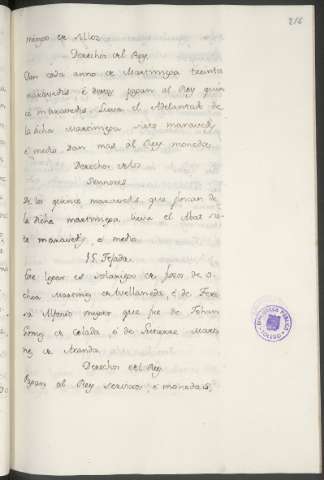 216
mingo de Silos
Derechos del Rey.
Dan cada anno de Martiniega treinta
maravedis é dotros pagan al Rey quin
ce maravedis. Lieva el Adelantado de
la dicha martiniega siete maraveds
e medio dan mas al Rey moneda.
Derechos de los
Sennores
De los quince maravedis que fincan de
la dicha martiniega lieva el Abat sie
te maravedis, e medio
15. Tejada.
Este logar es solariego de fijos de
Martinez de Avellaneda, é de
sa Alfonso muger que fue de Johan
de Celada, é de Gutierre Marti
nez de Aranda
Derechos del Rey
Pagan al Rey servicios, e monedas,
BIBLIOTECA PUBLICA
TOLEDO